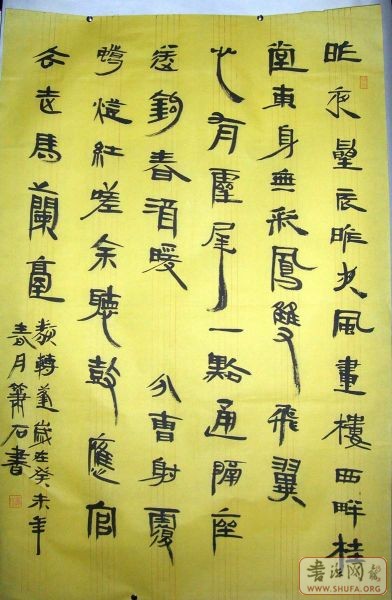 昨夜曐辰昨夜風畫樓西畔桂
堂東身無彩鳳雙飛翼
心有靈犀一點通隔座
送鉤春酒暖 分曹射覆
蠟燈紅嗟余聽鼓應官
去走馬蘭臺
類轉蓬歲在癸未年
春月簫石書
WWW.SHUFA.ORG